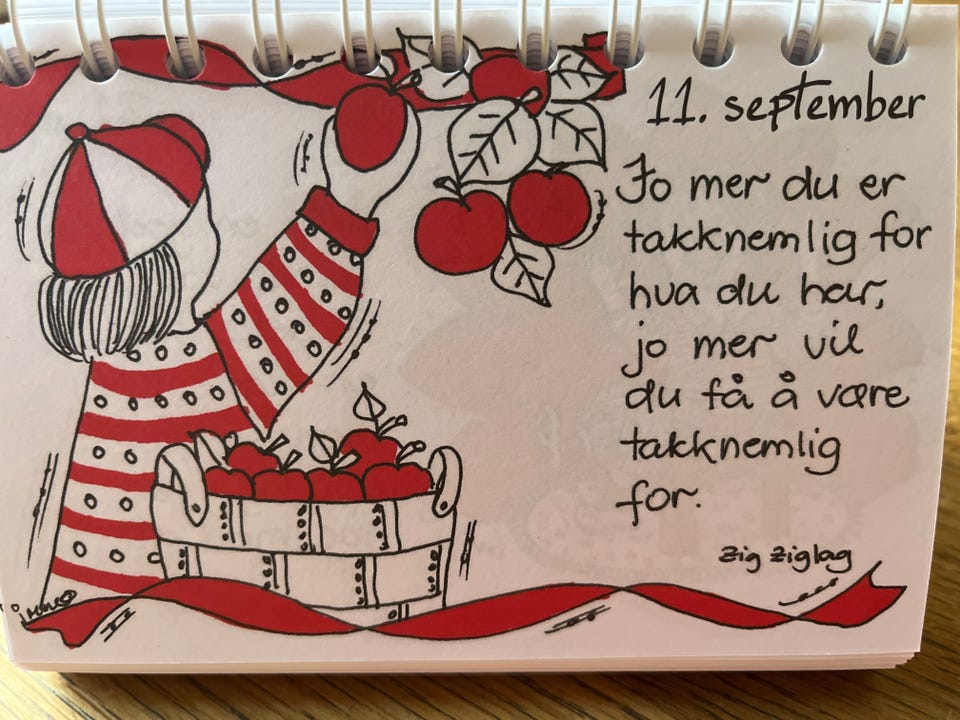 11. september
Jo mer du er
takknemlig for
hva du har,
jo mer vil
du få å være
takknemlig
for.
Zig Ziglag